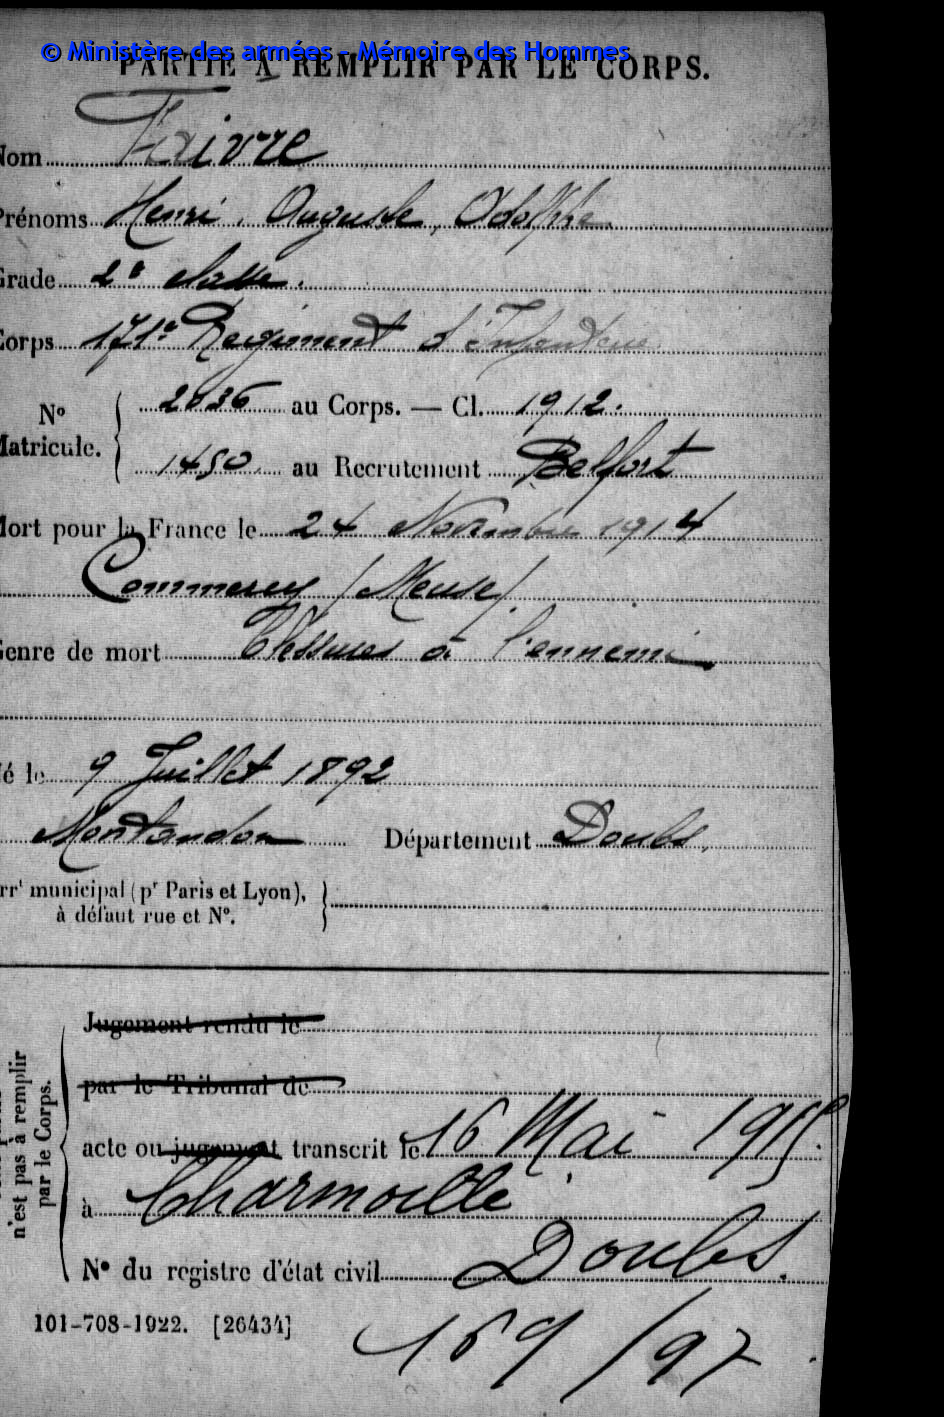 © Ministère des armées - Mémoire des Hommes
PARTIE À REMPLIR PAR LE CORPS.
Nom Faivre
Prénoms Henri, Auguste, Adolphe
Grade 2e classe.
Corps 171e Régiment d'Infanterie
No Matricule. 2836 au Corps. — Cl. 1912.
1450 au Recrutement Belfort
Mort pour la France le 24 Novembre 1914
Commercy (Meuse)
Genre de mort blessures à l'ennemi
Né le 9 Juillet 1892
Montandon Département Doubs,
arrt municipal (pr Paris et Lyon),
à défaut rue et No.
Jugement rendu le
par le Tribunal de
acte ou jugement transcrit le 16 Mai 1915.
à Charmoille
Doubs.
No du registre d'état civil
n'est pas à remplir
par le Corps.
101-708-1922. [26434]
169/97